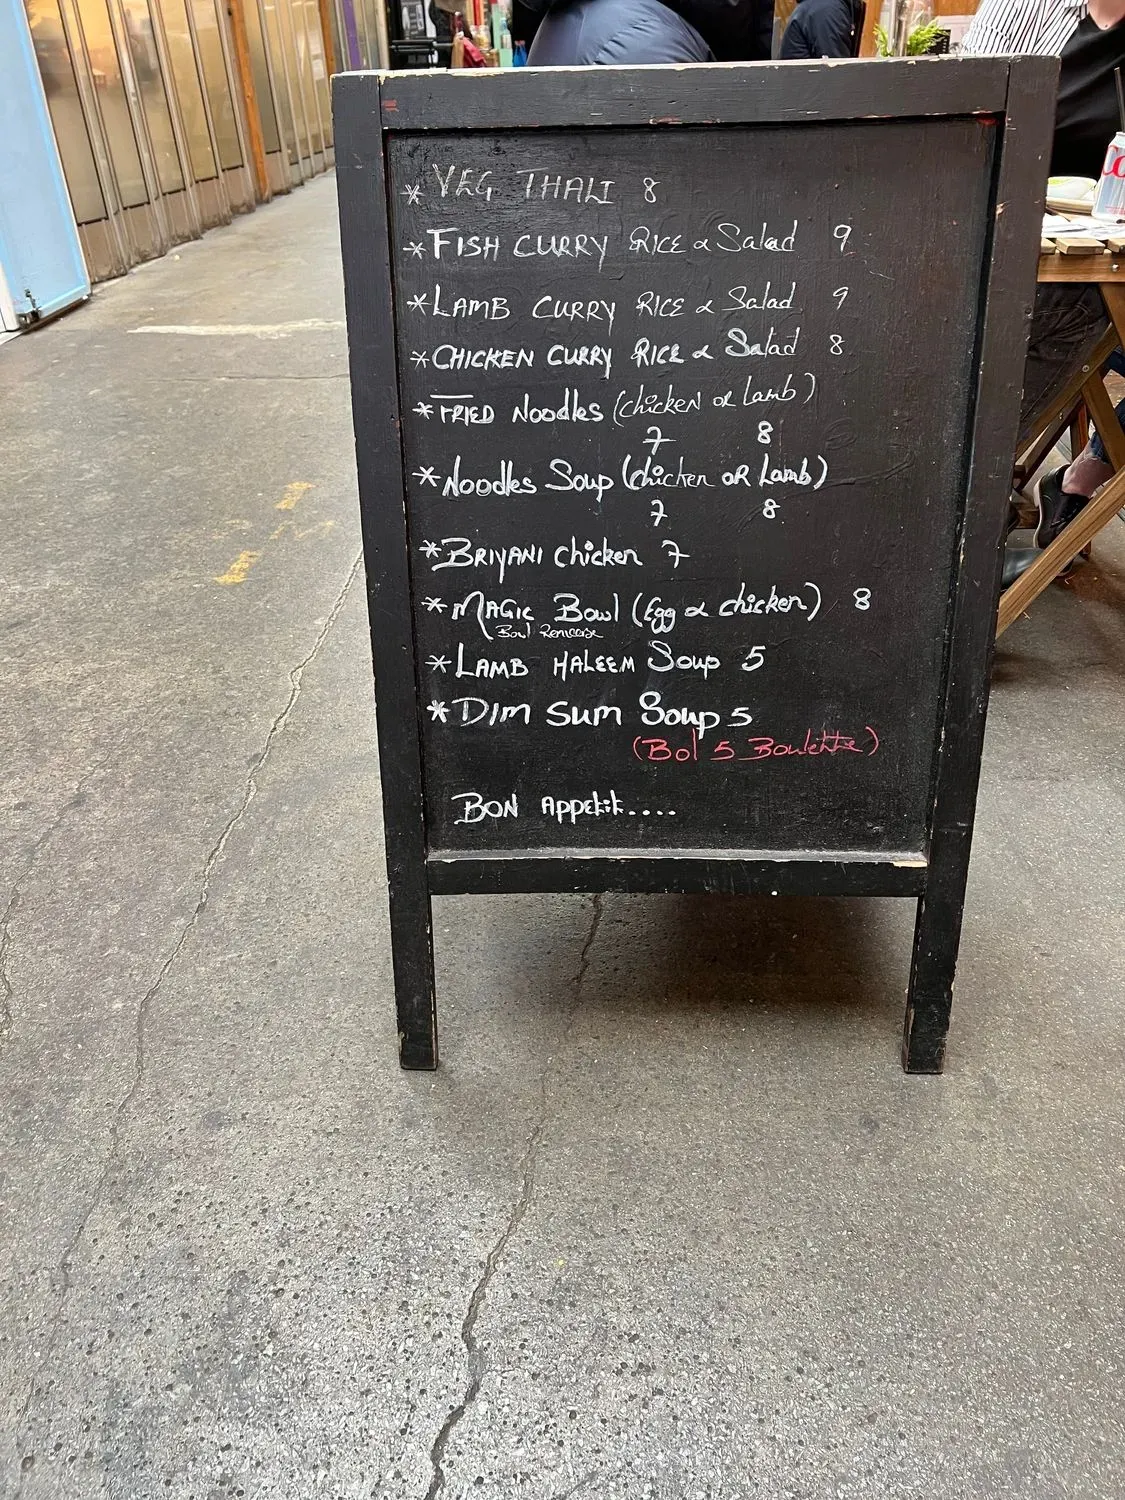 * VEG THALI 8
* FISH CURRY RICE & Salad 9
* LAMB CURRY RICE & Salad 9
* CHICKEN CURRY RICE & Salad 8
* FRIED Noodles (chicken or Lamb)
7 8
* Noodles Soup (chicken OR Lamb)
7 8
* BRIYANI chicken 7
* MAGIC Bowl (Egg & chicken) 8
Bowl Renverse
* LAMB HALEEM Soup 5
* DIM SUM Soup 5
(Bol 5 Boulette)
BON APPEtit....